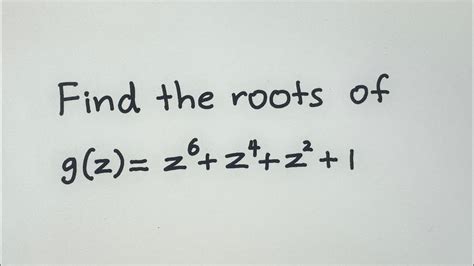 Find the roots of
g(z)= z⁶+z⁴+z²+1